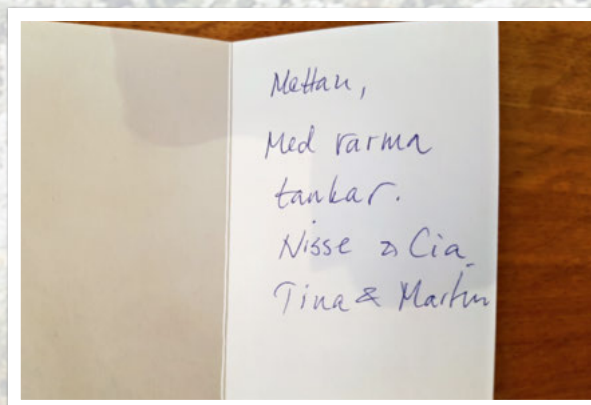 Mettan,
Med varma
tankar.
Nisse & Cia
Tina & Martin